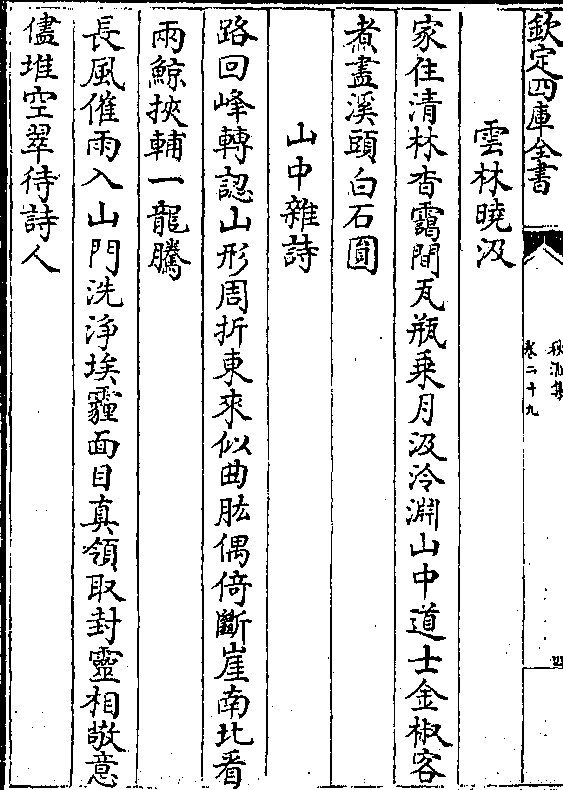 欽定四庫全書
秋澗集
卷二十九
四
雲林曉汲
家住清林杳靄間瓦瓶乗月汲泠淵山中道士金椒客
煮盡溪頭白石圓
山中雜詩
路回峰轉認山形周折東來似曲肱偶倚斷崖南北看
兩鯨挾輔一龍騰
長風催雨入山門洗浄埃霾面目真領取封靈相敬意
儘堆空翠待詩人